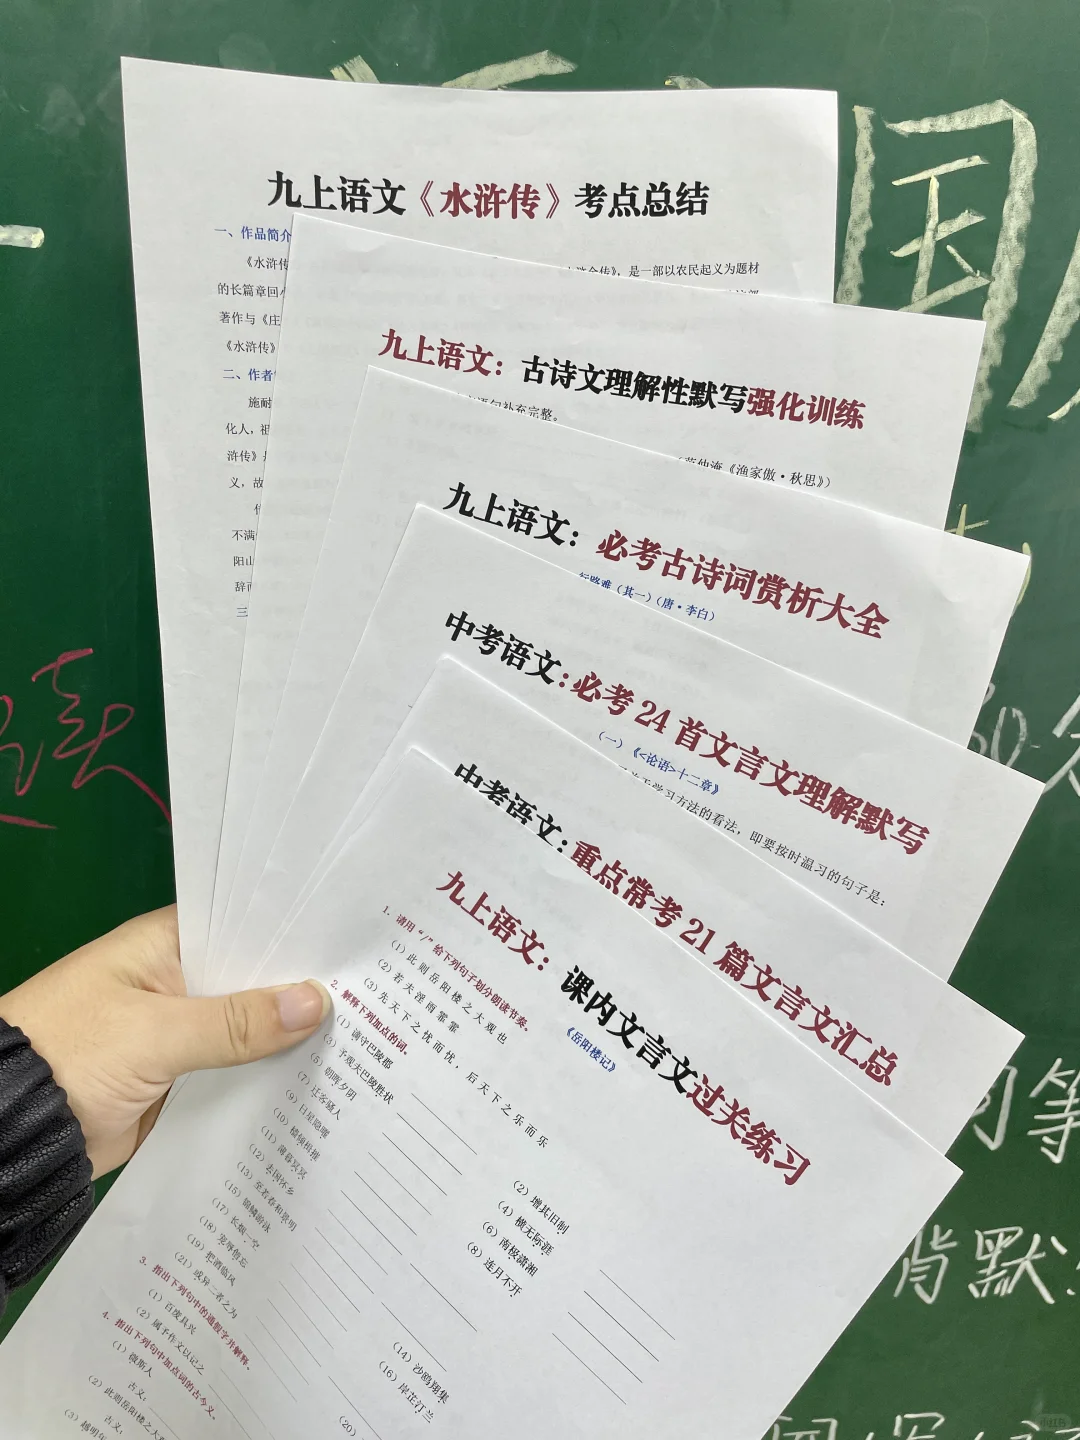 九上语文《水浒传》考点总结
一、作品简介
《水浒传
是一部以农民起义为题材
的长篇章回小
著作与《庄
《水浒传》
二、作者
施耐
化人，祖
浒传》是
义，故
不满
阳山
辞
三
九上语文：古诗文理解性默写强化训练
语句补充完整。
（范仲淹《渔家傲·秋思》）
九上语文：必考古诗词赏析大全
行路难（其一）（唐·李白）
中考语文：必考24首文言文理解默写
（一）《<论语>十二章》
学习方法的看法，即要按时温习的句子是：
中考语文：重点常考21篇文言文汇总
九上语文：课内文言文过关练习
《岳阳楼记》
1. 请用“/”给下列句子划分朗读节奏。
（1）此则岳阳楼之大观也
（2）若夫淫雨霏霏
（3）先天下之忧而忧，后天下之乐而乐
2. 解释下列加点的词。
（1）谪守巴陵郡
（2）增其旧制
（3）予观夫巴陵胜状
（4）横无际涯
（5）朝晖夕阴
（6）南极潇湘
（7）迁客骚人
（8）连月不开
（9）日星隐曜
（10）樯倾楫摧
（11）薄暮冥冥
（12）去国怀乡
（13）至若春和景明
（14）沙鸥翔集
（15）锦鳞游泳
（16）岸芷汀兰
（17）长烟一空
（18）宠辱偕忘
（19）把酒临风
（20）
（21）或异二者之为
3. 指出下列句中的通假字并解释。
（1）百废具兴
（2）属予作文以记之
4. 指出下列句中加点词的古今义。
（1）微斯人
古义：
（2）此则岳阳楼之大观
古义：
（3）越明年
国
读
等
背默
小红书